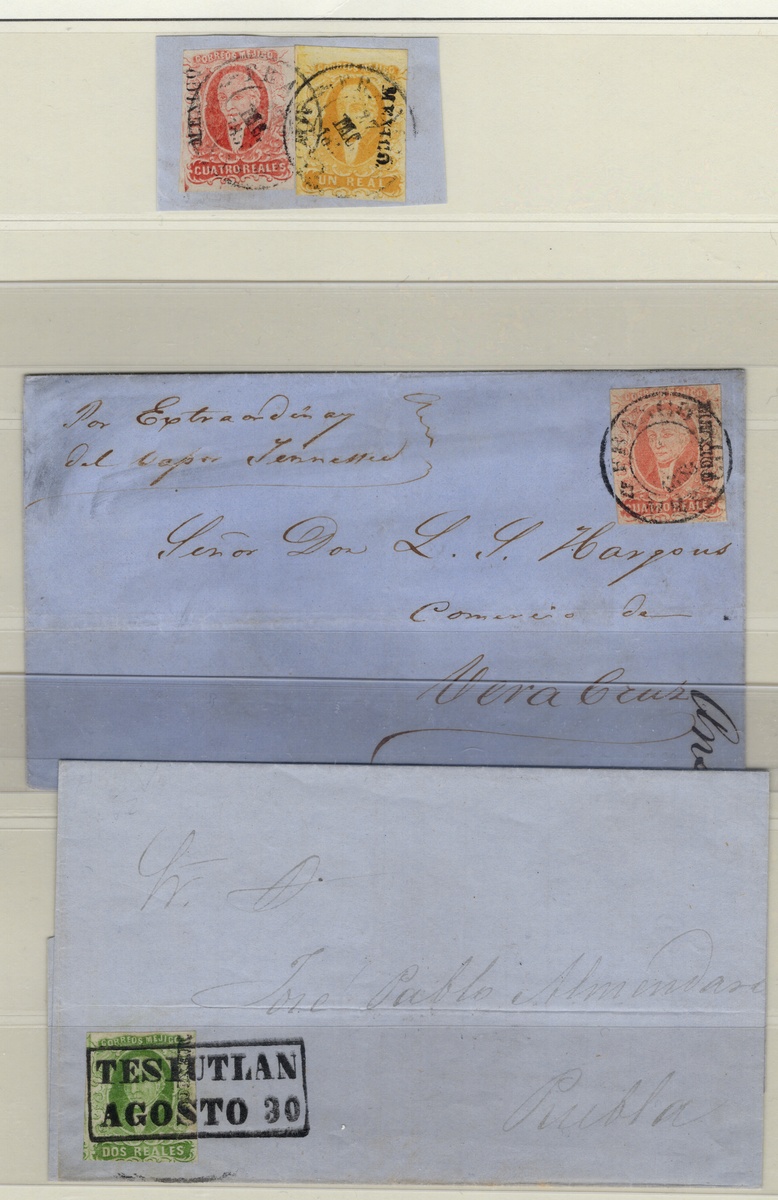 CORREOS MEJICO
MEXICO
CUATRO REALES
MEXICO.
UN REAL
Por Extraordinary
del vapor Tennessee
MEXICO
CUATRO REALES
Señor Don L. S. Hargous
Comercio de
Vera Cruz
Sr. D.
José Pablo Almendari
Puebla
CORREOS MEJICO
TESIUTLAN
AGOSTO 30
DOS REALES